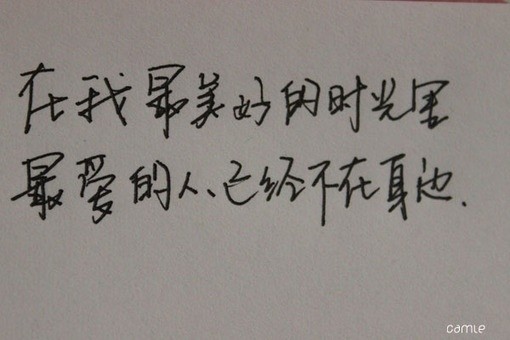 在我最美好的时光里
最爱的人、已经不在身边.
camie